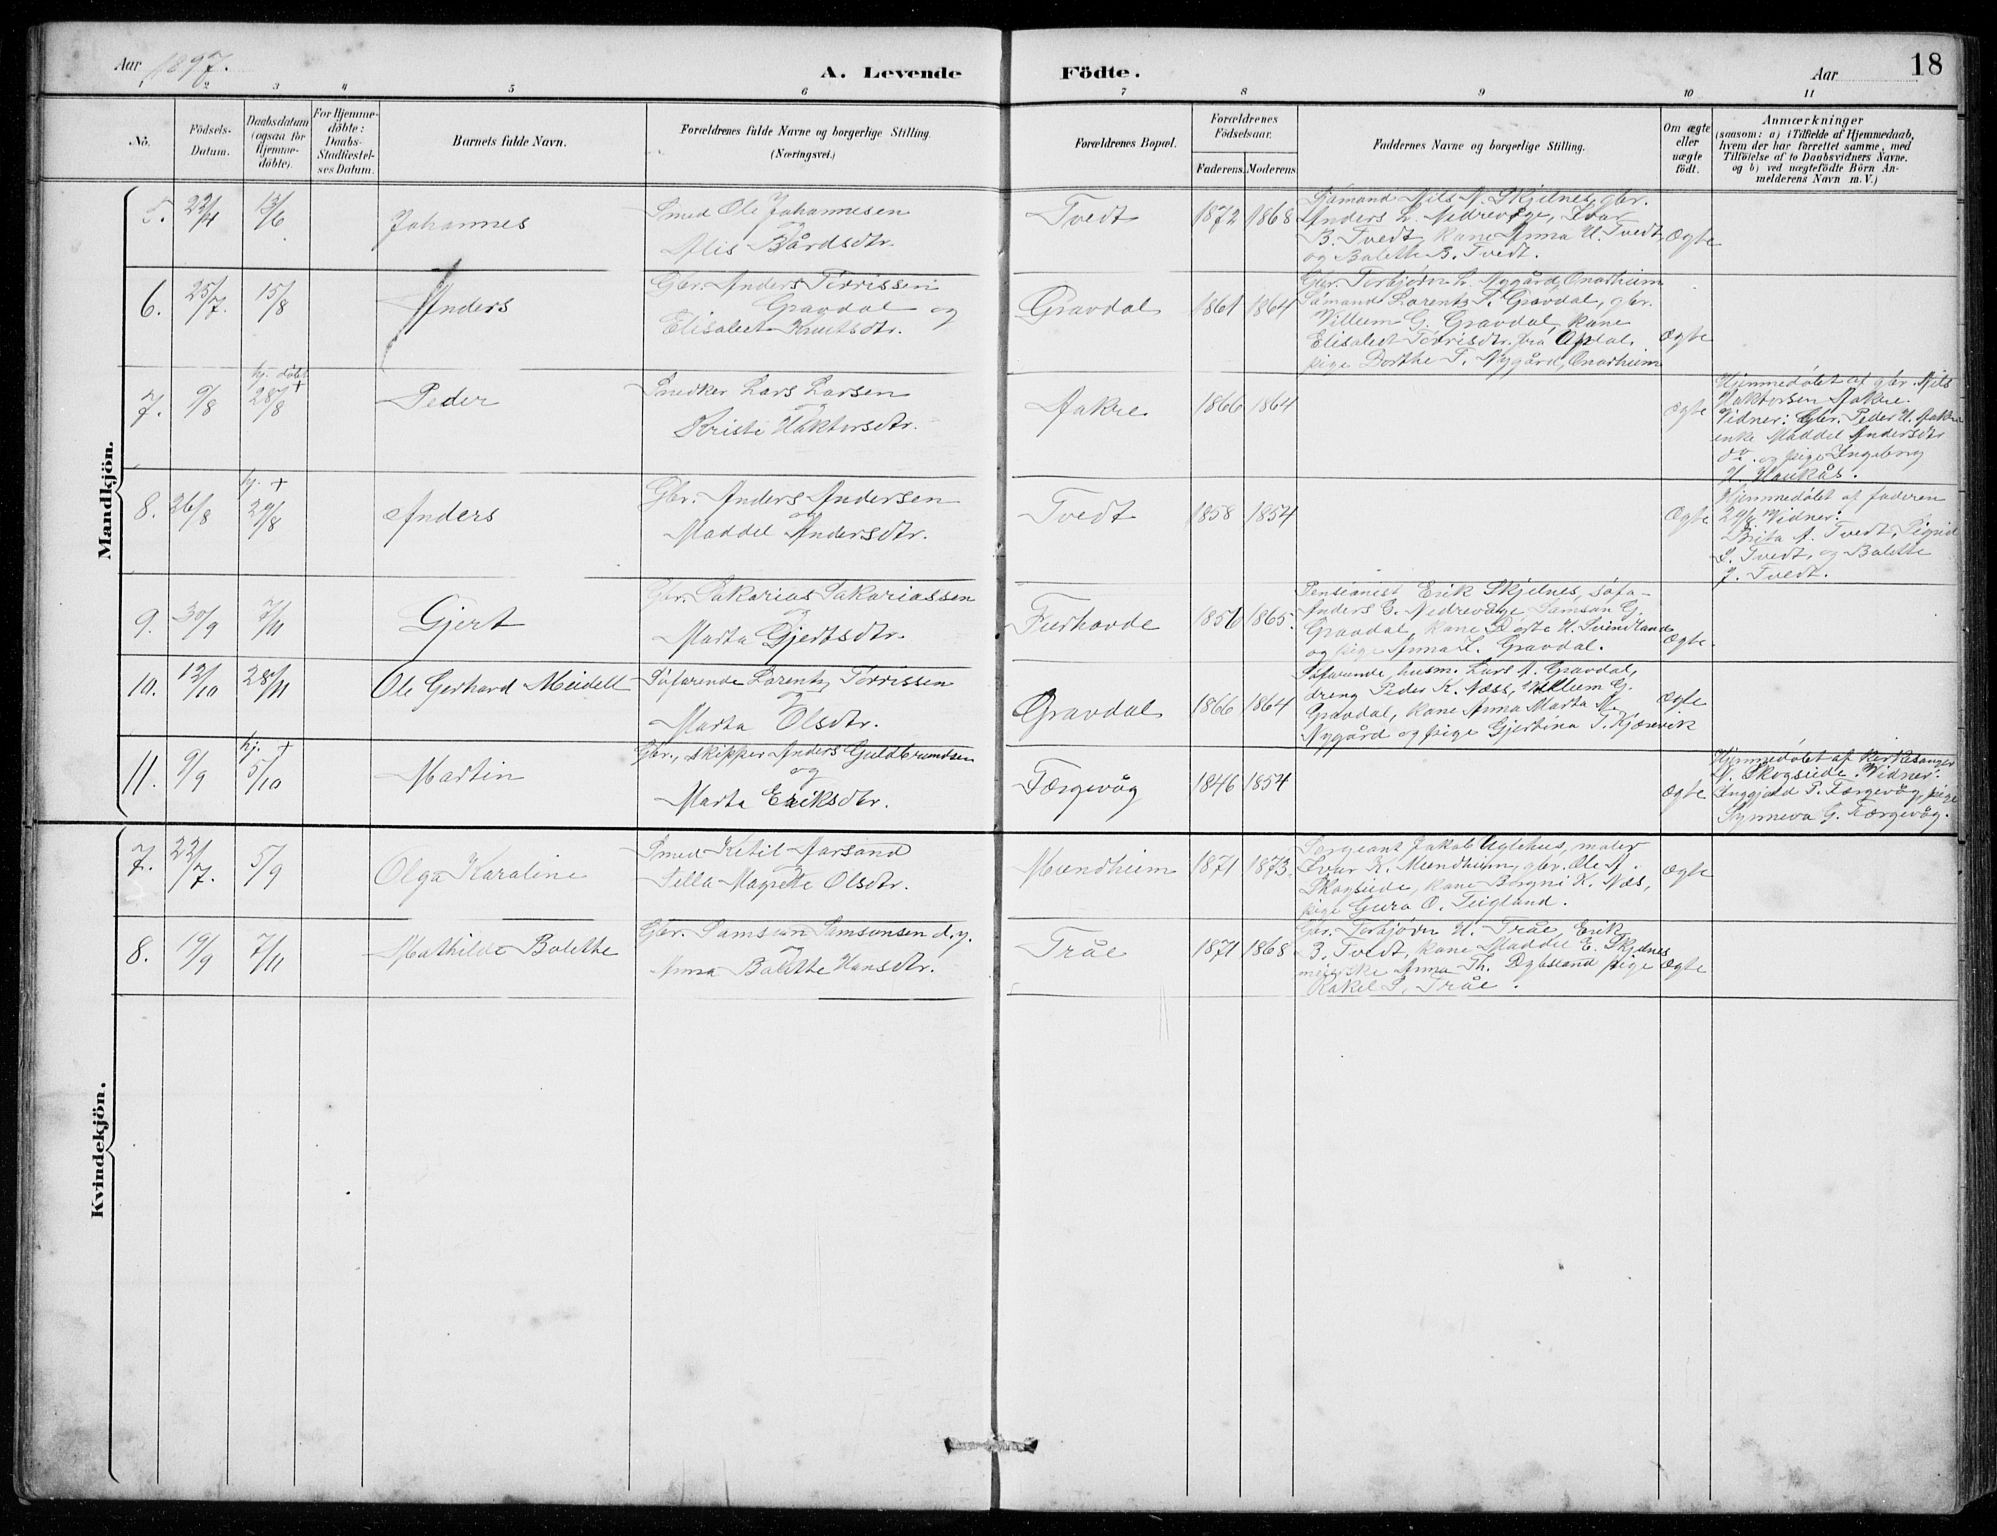 Aar 1897.
A. Levende Födte.
Aar
18
1 2 3 4 5 6 7 8 9 10 11
No.
Födsels-Datum.
Daabsdatum (ogsaa for Hjemme-döbte).
For Hjemme-døbte: Daabs-Stadfæstel-ses Datum.
Barnets fulde Navn.
Forældrenes fulde Navne og borgerlige Stilling. (Næringsvei.)
Forældrenes Bopæl.
Forældrenes Födselsaar.
Faderens. Moderens.
Faddernes Navne og borgerlige Stilling.
Om ægte eller uægte födt.
Anmærkninger
(saasom: a) i Tilfælde af Hjemmedaab,
hvem der har forrettet samme, med
Tilföielse af to Daabsvidners Navne,
og b) ved uægtefödte Börn An-
melderens Navn m. V.)
Mandkjön.
5. 22/4 13/6 Johannes
Smed Ole Johannesen
og
Alis Bårdsdtr.
Tvedt 1872 1868
Sømand Nils N. Skjelnes, gbr.
Anders L. Nedrevåge, Ivar
B. Tvedt, kone Anna H. Tvedt,
og Bolethe B. Tvedt.
Ægte
6. 25/7. 15/8 Anders
Gbr. Anders Tørrissen
Gravdal og
Elisabet Knutsdtr.
Gravdal 1861 1864
Gbr. Torbjørn L. Nygård, Onarheim
Sømand Lorentz T. Gravdal, gbr.
Villum G. Gravdal, kone
Elisabet Tørrisdtr. fra
pige Dorthe T. Nygård, Onarheim
Ægte
7. 9/8 hj. døbt 28/8 + Peder
Snedker Lars Larsen
og
Kristi Haktorsdtr.
Aakre 1866 1864
ægte
Hjemmedøbt af gbr. Nils
Haktorsen Aakre.
Vidner: Gbr. Peder H. Aakre
enke Maddel Andersdtr
do. og pige Ingeborg
H. Haukås.
8. 26/8 hj. + 29/8 Anders
Gbr. Anders Andersen
og
Maddel Andersdtr.
Tvedt 1858 1854
Ægte
Hjemmedøbt af faderen
29/8 Vidner:
Brita A. Tvedt, Sigrid
S. Tvedt, og Bolette
J. Tvedt.
9. 30/9 7/11 Gjert
Gbr. Sakarias Sakariassen
og
Marta Gjertsdtr.
1856 1865.
Pensionist Erik Skjelnes, søfa-
Anders E. Nedrevåge Samson G.
Gravdal, kone Dorte H. Svendland
og pige Anna L. Gravdal.
Ægte.
10. 12/10 28/11 Ole Gerhard Meidell
Søfarende Lorentz Tørrissen
og
Marta Olsdtr.
Gravdal 1866 1864
Søfarende, husm. Lars A. Gravdal,
dreng Peder K. Næss, Villum G.
Gravdal, kone Anna Marta N.
Nygård og pige Gjertina T. Kjærevik
Ægte
11. 9/9 hj. + 5/10 Martin
Gbr., skipper Anders Guldbrandsen
og
Marta Eriksdtr.
Færgevåg 1846 1854
ægte
Hjemmedøbt af kirkesanger
N. Skogseide. Vidner:
Inggjald P. Færgevåg, pige
Synneva G. Færgevåg.
Kvindekjön.
7. 22/7. 5/9 Olga Karoline
Smed Ketil Aarsand
og
Sella Magrethe Olsdtr.
Mundheim 1871 1873.
Sergeant Jakob Uglehus, maler
Ivar K. Mundheim, gbr. Ole N.
Skogseide, kone Borgni K. Næs,
pige Guro O. Teigland.
ægte
8. 19/9 7/11 Mathilde Bolette
Gbr. Samson Samsonsen d. y.
og
Anna Bolette Hansdtr.
Tråe 1871 1868
Gbr. Torbjørn H. Tråe, Erik
B. Tvedt, kone Maddel E. Skjelnes
meierske Anna Th. pige
Rakel S. Tråe.
ægte